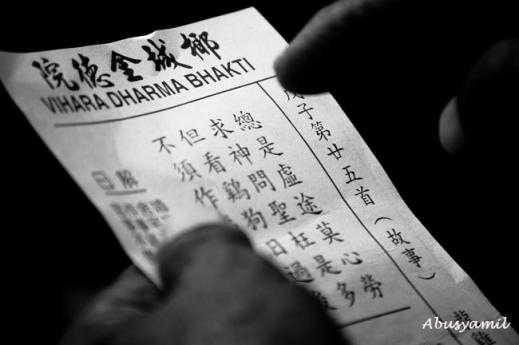 椰城金德院
VIHARA DHARMA BHAKTI
戊子第廿五首(故事)
總是虛途莫心勞
求神問聖枉是多
但看鷄狗日過
不須作
解曰
Abusyamil